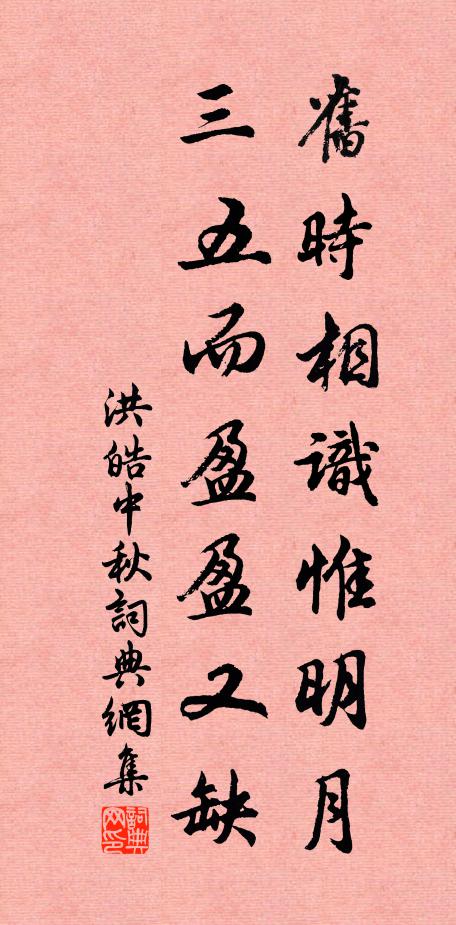 舊時相識惟明月
三五而盈盈又缺
洪皓中秋詞典網集
詞典網印